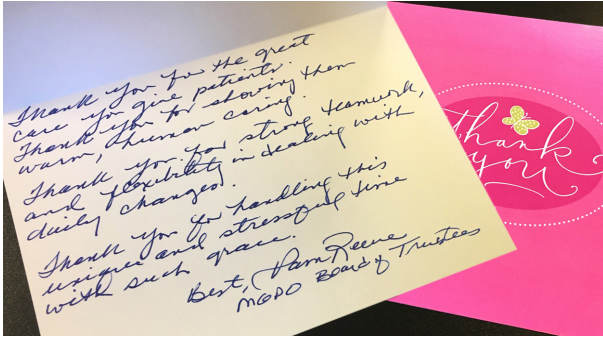 Thank you for the great
care you give patients.
Thank you for showing them
warm, human caring.
Thank you for strong teamwork,
and flexibility in dealing with
daily changes.
Thank you for handling this
unique and stressful time
with such grace.
Best, Pam Reeve
MGPO Board of Trustees
Thank
you